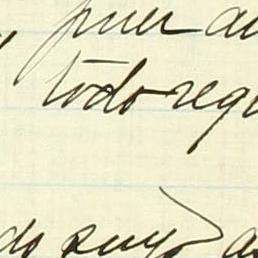 puer au
todo regu
do suyo a